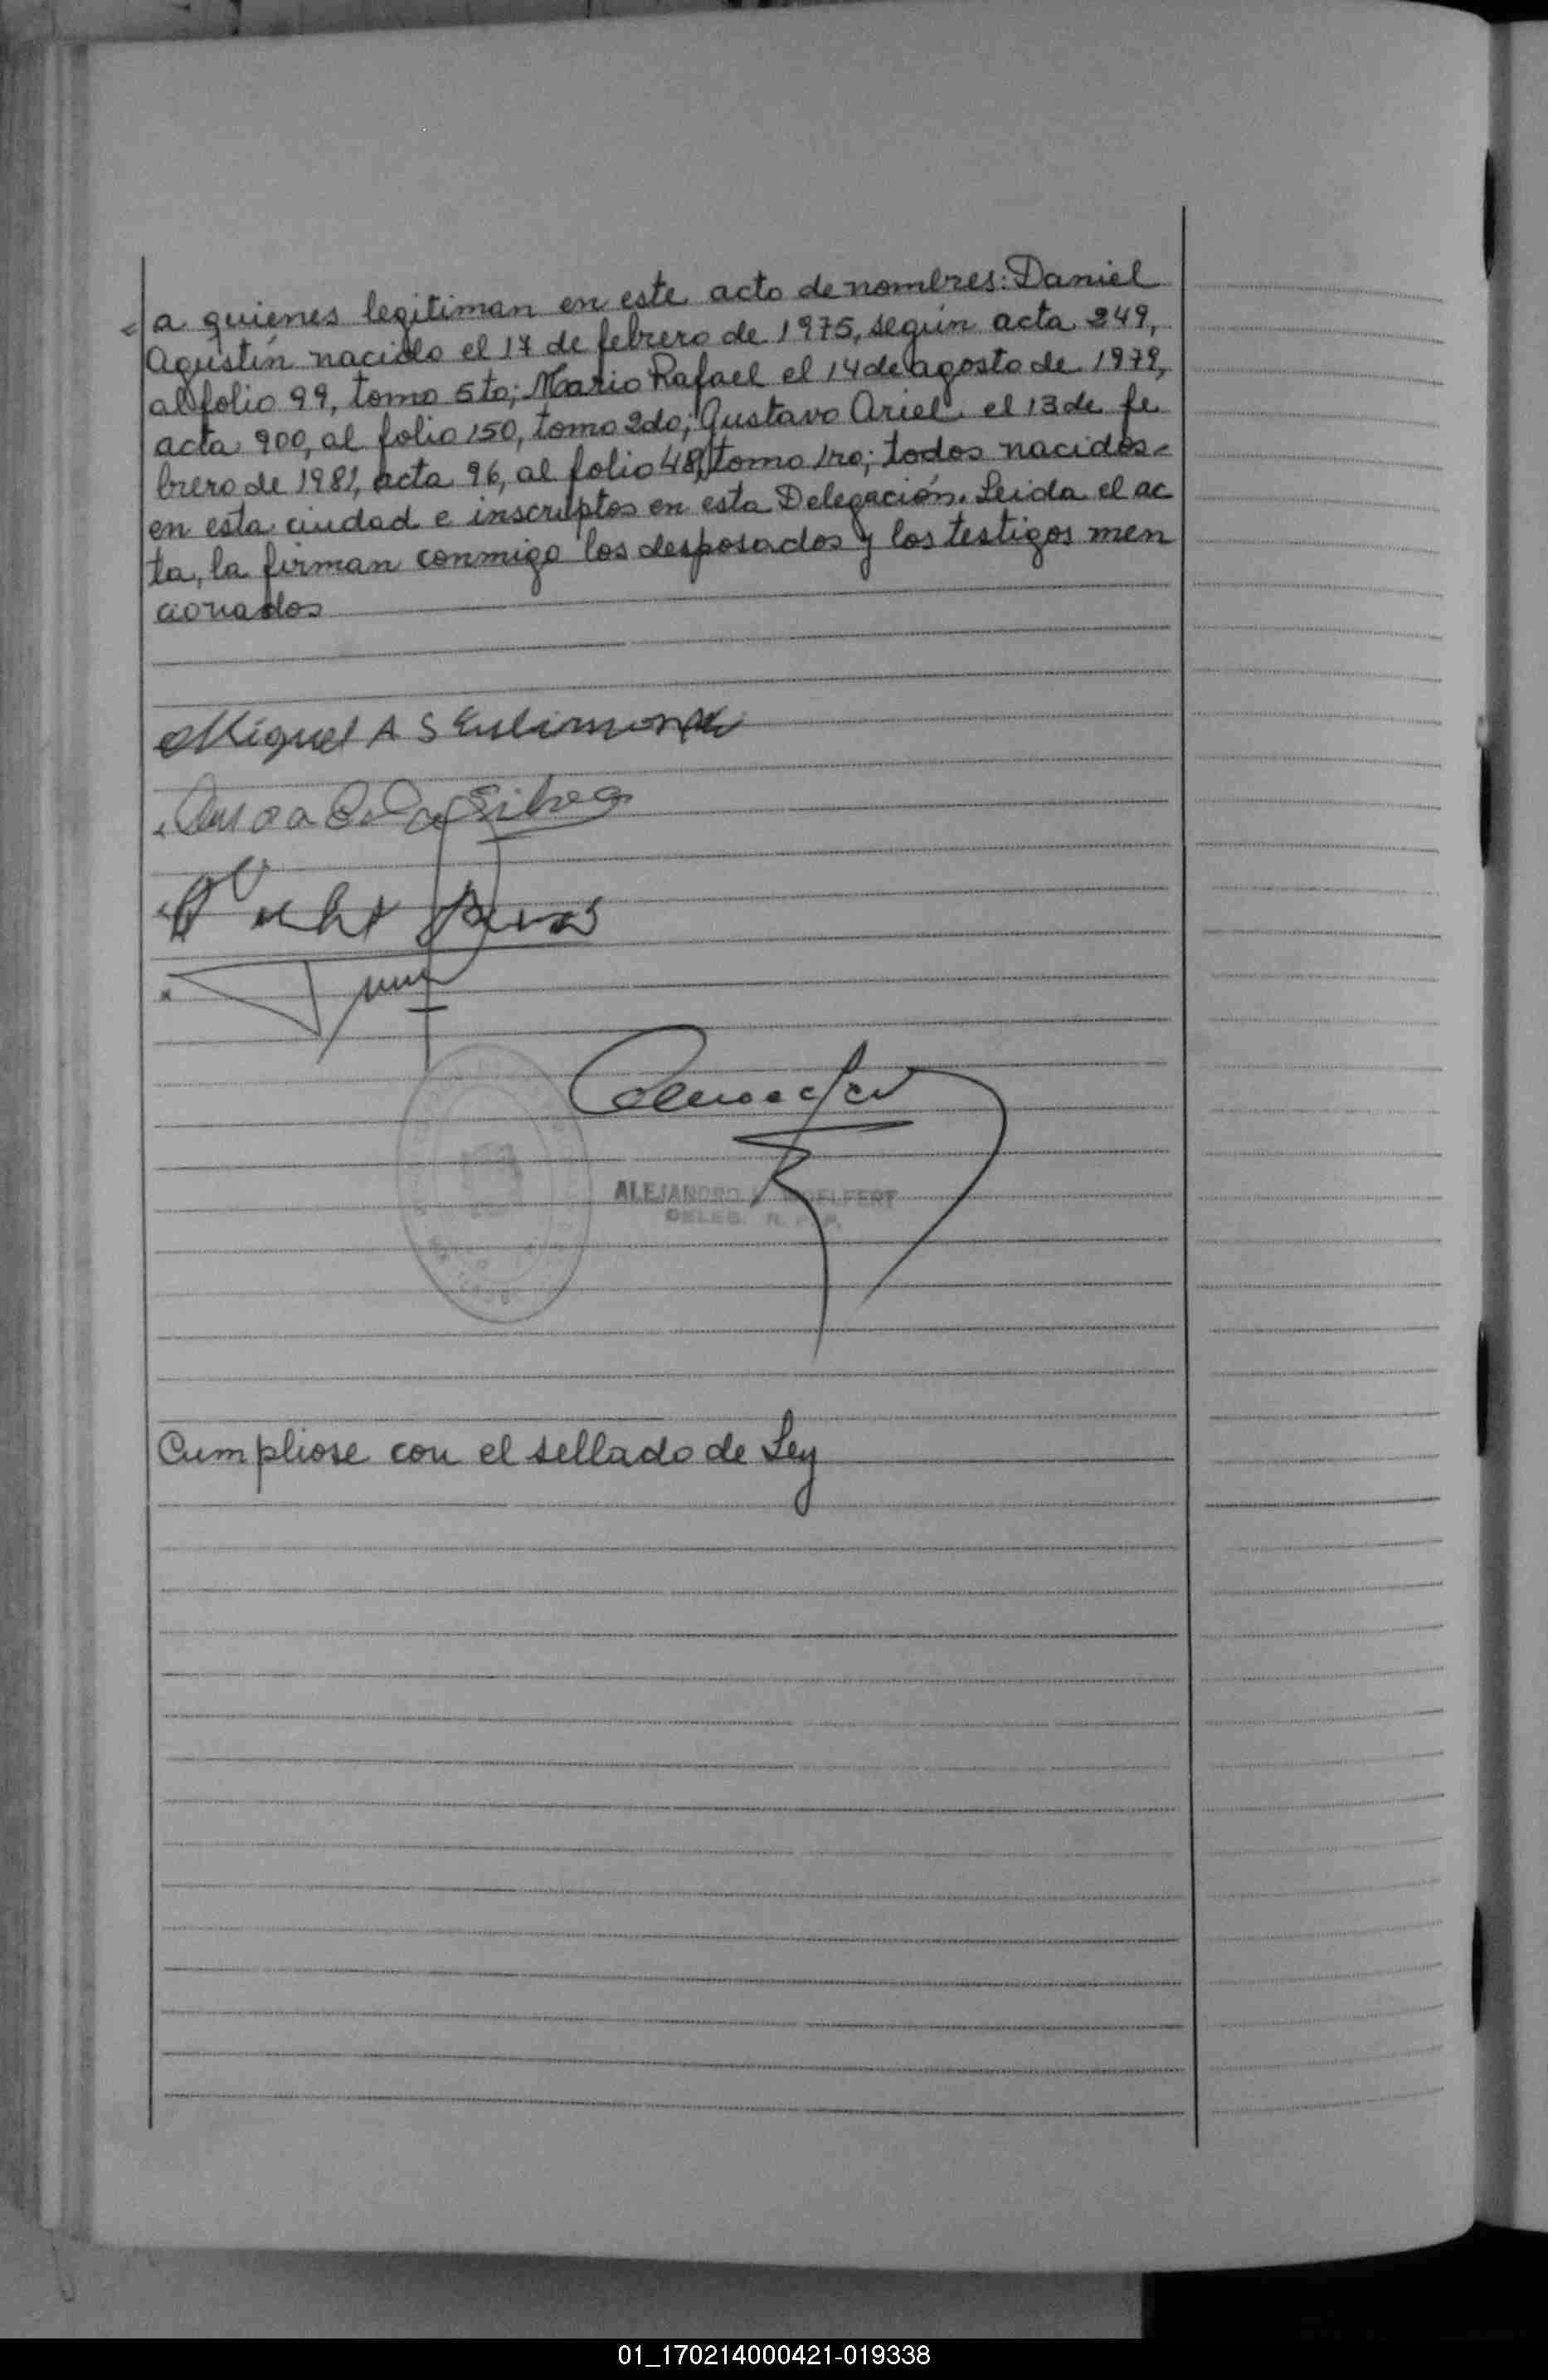 a quienes legitiman en este acto de nombres: Daniel
Agustín nacido el 17 de febrero de 1975, según acta 249,
al folio 99, tomo 5to; Mario Rafael el 14 de agosto de 1979,
acta 900, al folio 150, tomo 2do; Gustavo Ariel el 13 de fe
brero de 1981, acta 96, al folio 48, tomo 1ro; todos nacidos
en esta ciudad e inscriptos en esta Delegación. Leida el ac
ta, la firman conmigo los desposados y los testigos men
cionados
Miguel A S
Silva
ALEJANDRO
DELEG. R.
Cumpliose con el sellado de Ley
01_170214000421-019338